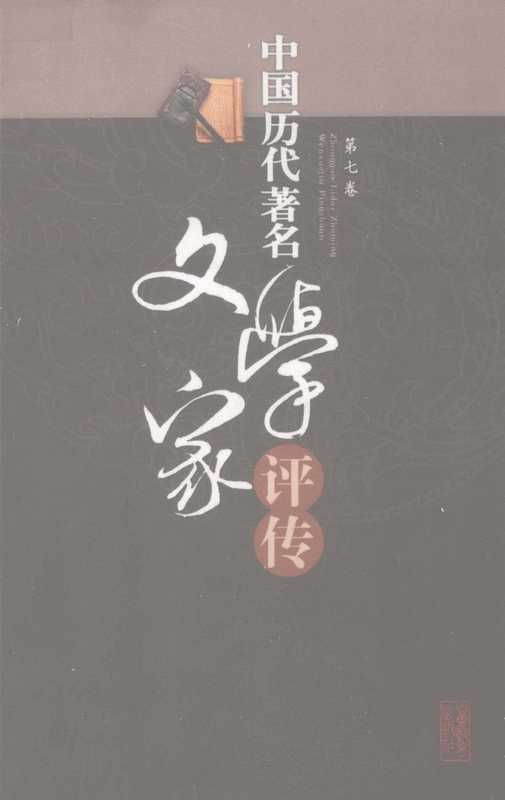 中国历代著名
文學家
评传
第七卷
Zhongguo Lidai Zhuming
Wenxuejia Pingzhuan